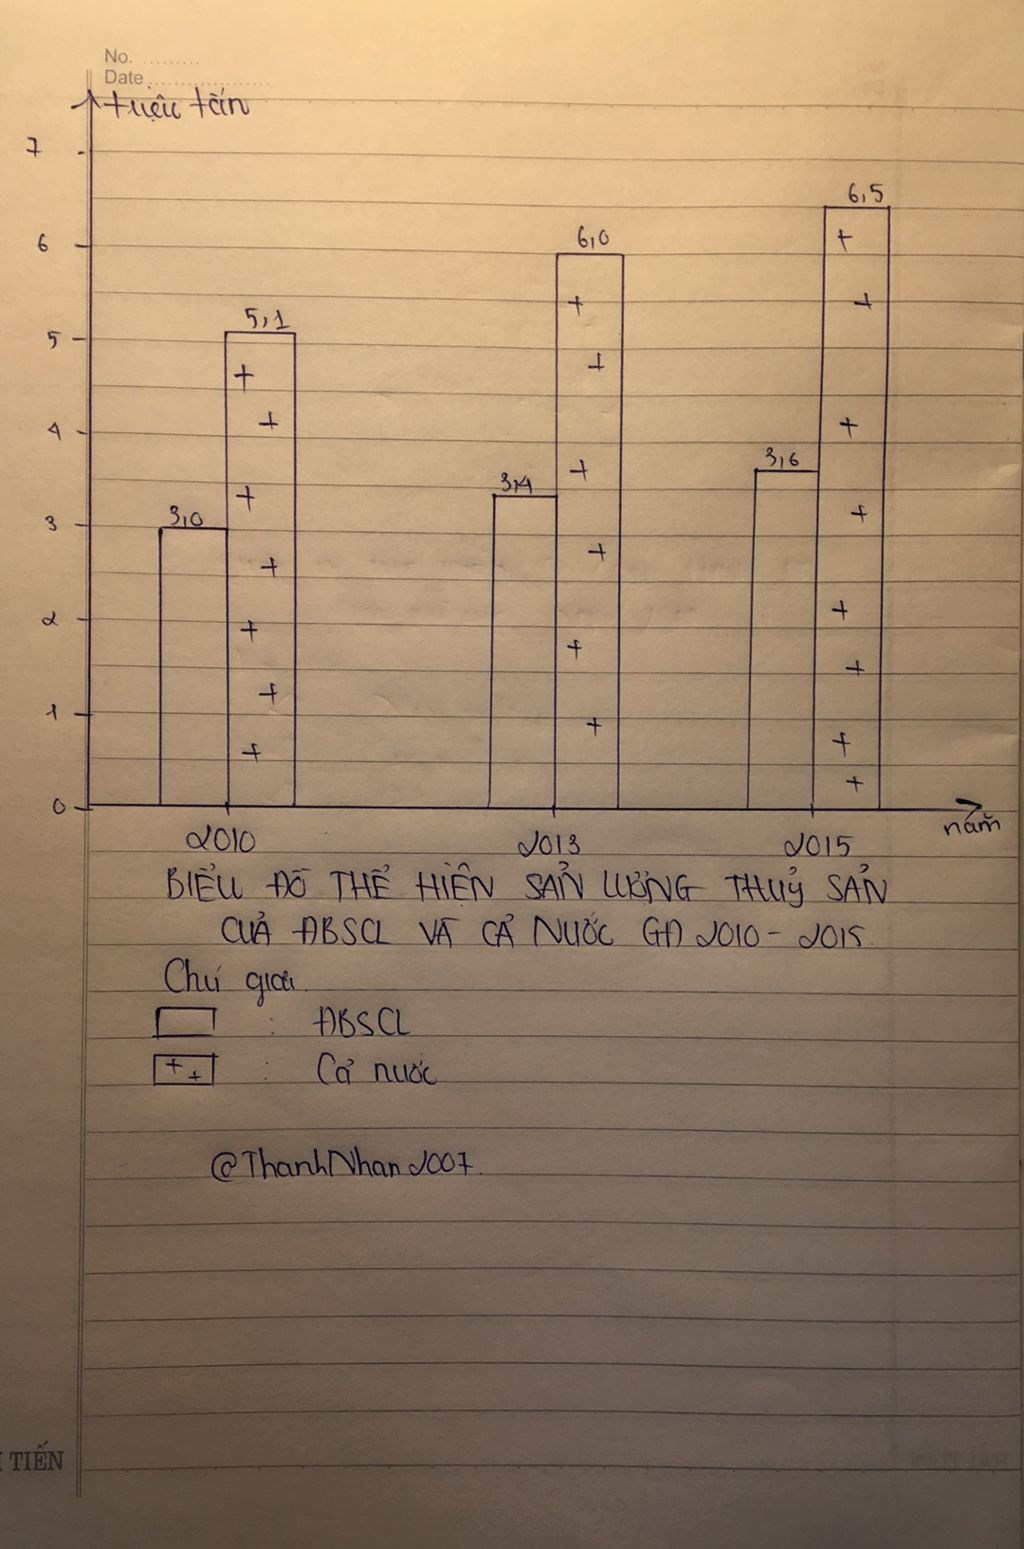 No. .........
Date ..................
triệu tấn
7
6,5
6,0
6
5,1
5
4
3,6
3,4
3,0
3
2
1
0
năm
2010 2013 2015
BIỂU ĐỒ THỂ HIỆN SẢN LƯỢNG THUỶ SẢN
CUẢ ĐBSCL VÀ CẢ NƯỚC GĐ 2010 - 2015.
Chú giải
: ĐBSCL
: Cả nước
@ThanhNhan2007.
TIẾN